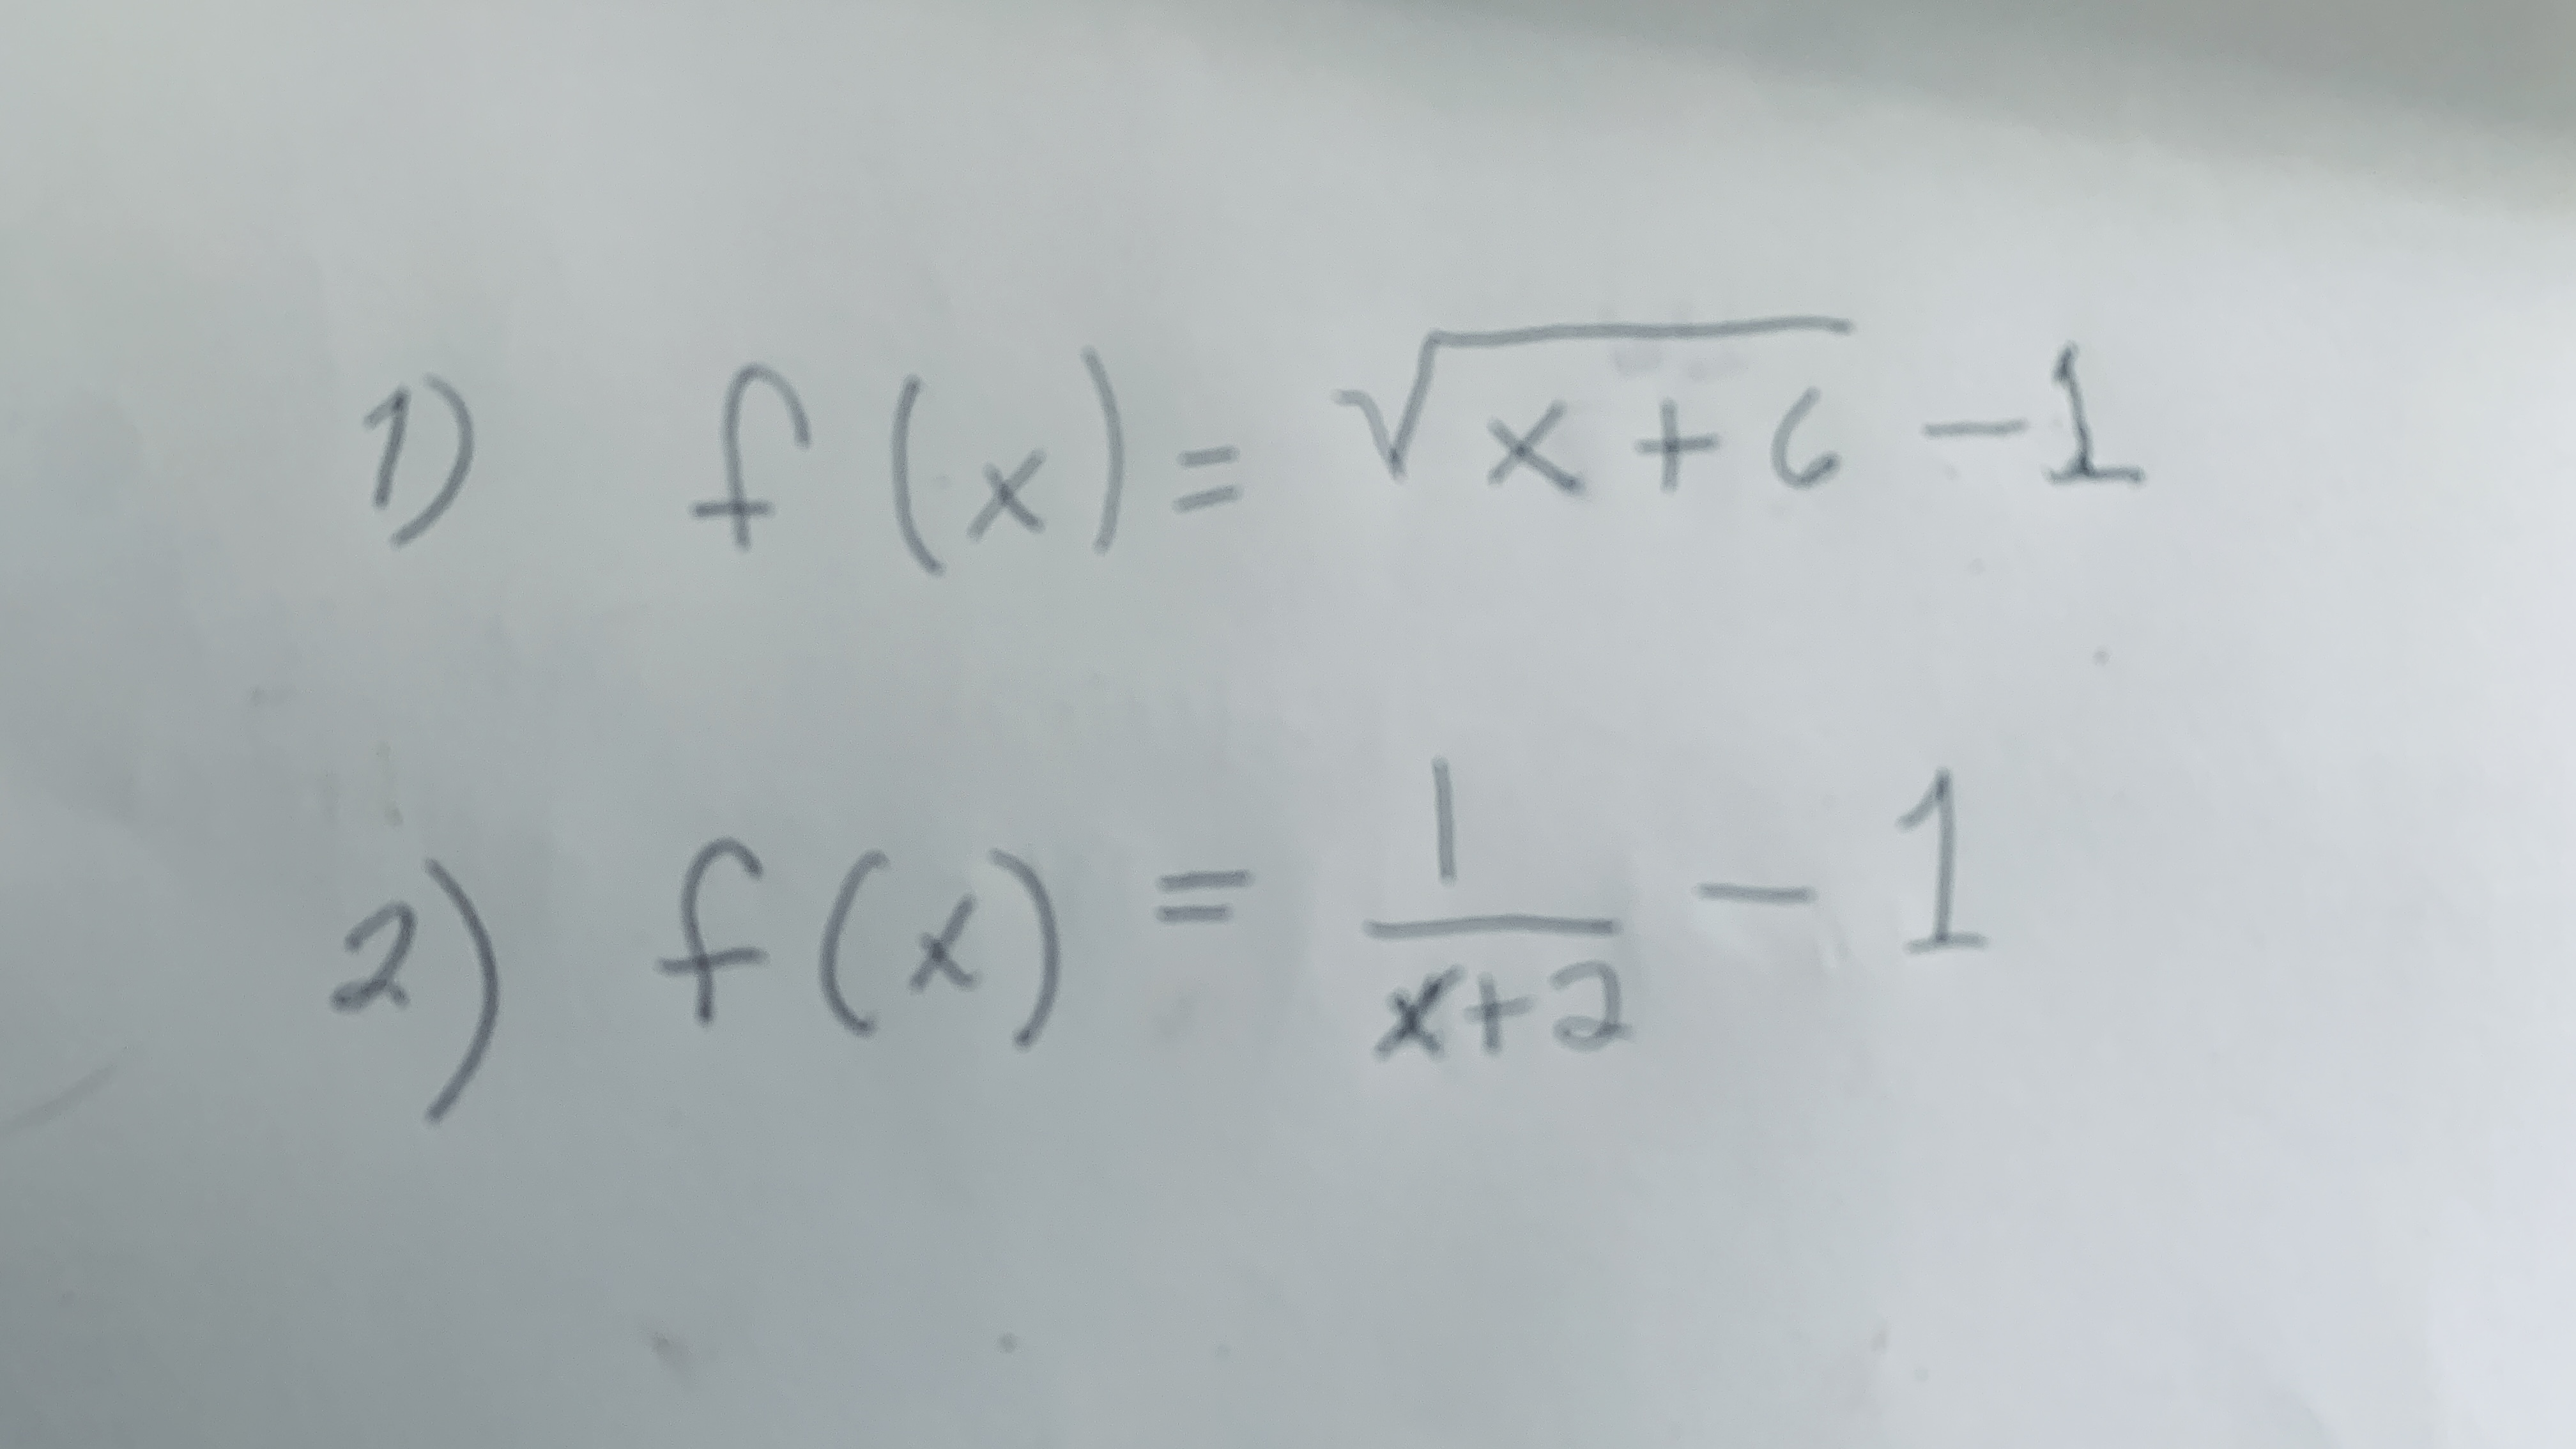 1) f(x) = √(x+6) - 1
2) f(x) = 1/(x+2) - 1